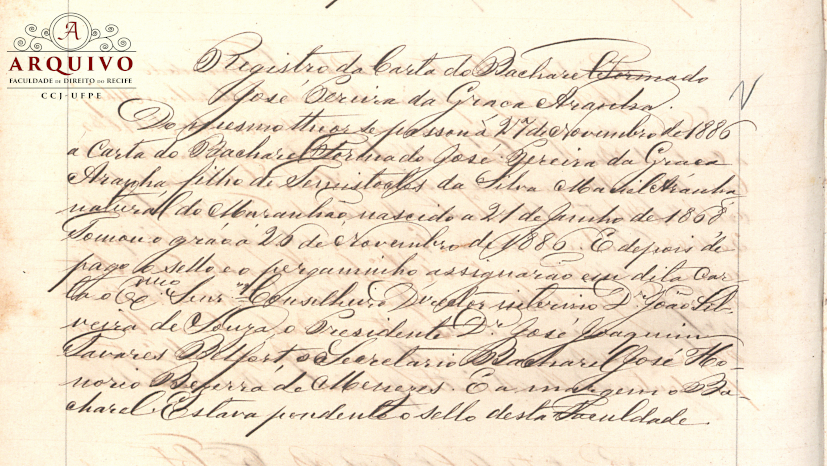 A
ARQUIVO
FACULDADE DE DIREITO DO RECIFE
CCJ-UFPE
Registro da Carta do Bacharel Formado
José Pereira da Graça Aranha.
Do mesmo theor se passou à 27 de Novembro de 1886
a Carta do Bacharel Formado José Pereira da Graça
Aranha, filho de Temistocles da Silva Maciel Aranha
natural do Maranhão, nascido a 21 de Junho de 1868
Tomou o gráo á 26 de Novembro de 1886. E depois de
pago o sello e o pergaminho assignarão em dita Car-
ta o Exmo Senr Conselheiro Director interino Dr João Sil-
veira de Souza, o Presidente Dr José Joaquim
Tavares Belfort, o Secretario Bacharel José Ho-
norio Beserra de Meneses. E a margem o Ba-
charel. Estava pendente o sello desta Faculdade.